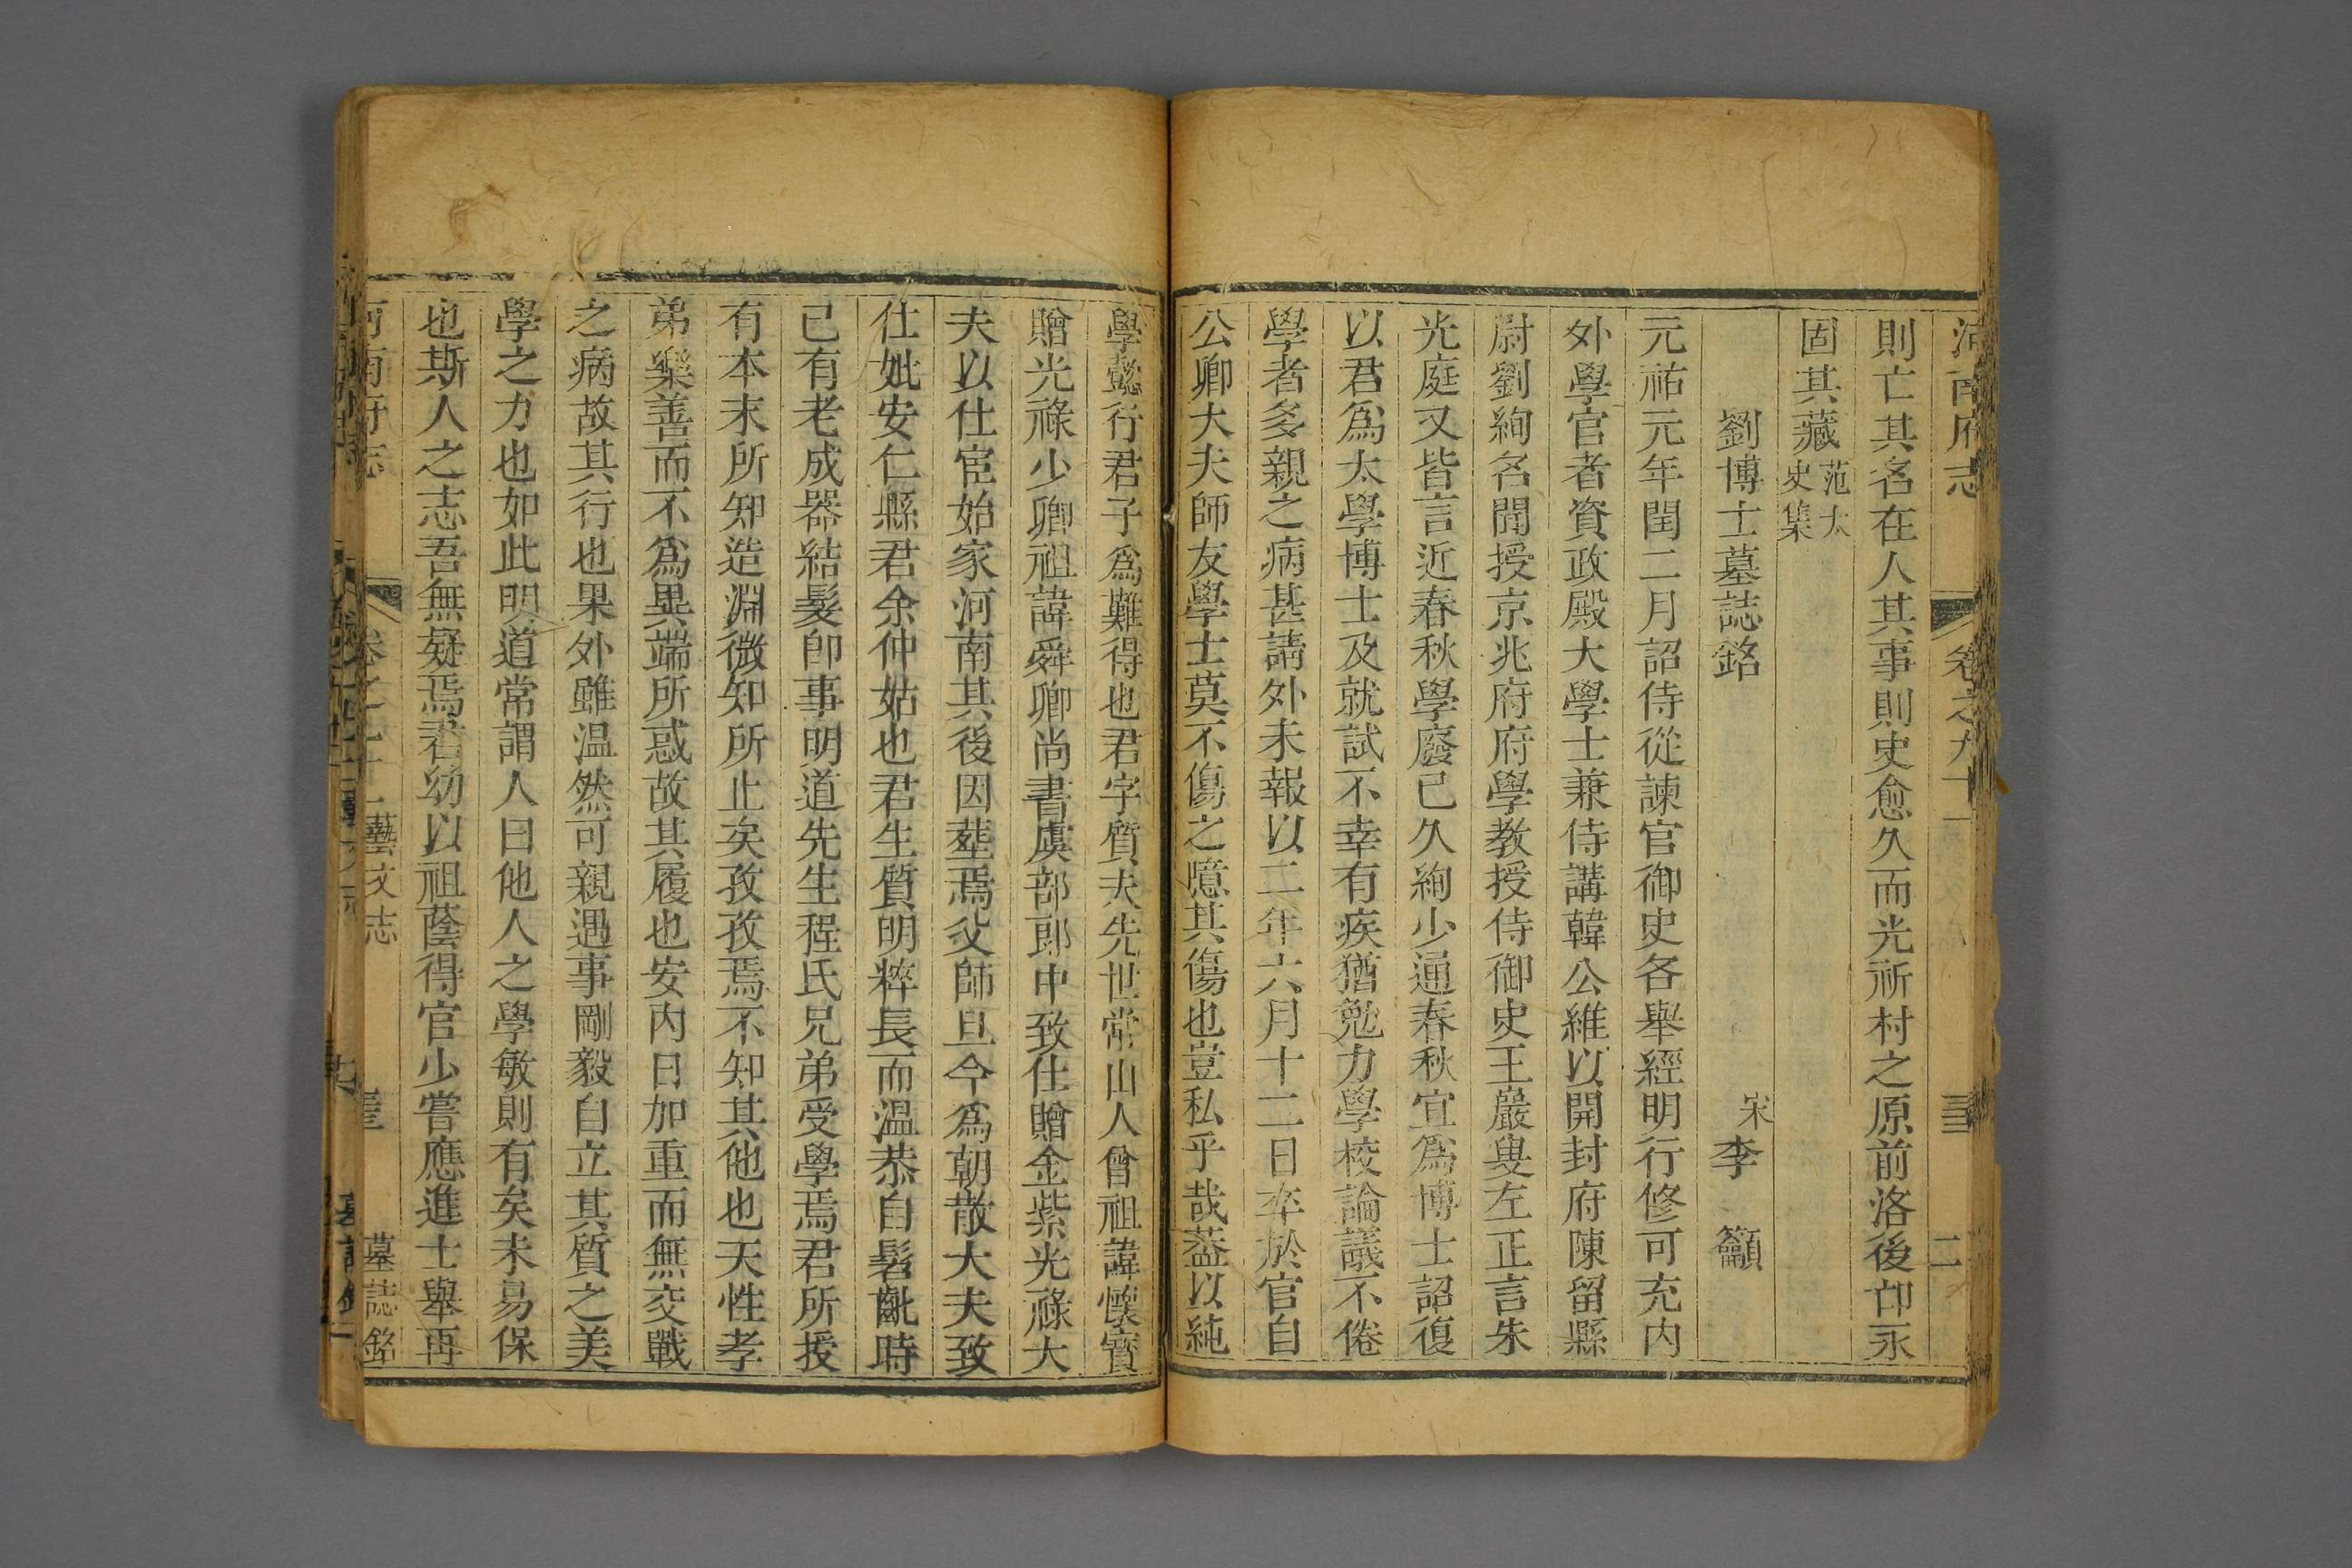 河南府志 卷之九十一 二
則亡其名在人其事則史愈久而光祈村之原前洛後卬永
固其藏范太史集
劉博士墓誌銘 宋李籲
元祐元年閏二月詔侍從諫官御史各舉經明行修可充内
外學官者資政殿大學士兼侍講韓公維以開封府陳留縣
尉劉絢名聞授京兆府府學教授侍御史王巖叟左正言朱
光庭又皆言近春秋學廢已久絢少通春秋宜爲博士詔復
以君爲太學博士及就試不幸有疾猶勉力學校論議不倦
學者多親之病甚請外未報以二年六月十二日卒於官自
公卿大夫師友學士莫不傷之噫其傷也豈私乎哉葢以純
學懿行君子爲難得也君字質夫先世常山人曾祖諱懷寶
贈光祿少卿祖諱舜卿尚書虞部郎中致仕贈金紫光祿大
夫以仕宦始家河南其後因塟焉父師旦今爲朝散大夫致
仕妣安仁縣君余仲姑也君生質明粹長而温恭自髫齓時
已有老成器結髮卽事明道先生程氏兄弟受學焉君所授
有本末所知造淵微知所止矣孜孜焉不知其他也天性孝
弟樂善而不爲異端所惑故其履也安内日加重而無交戰
之病故其行也果外雖温然可親遇事剛毅自立其質之美
學之力也如此明道常謂人曰他人之學敏則有矣未易保
也斯人之志吾無疑焉君幼以祖蔭得官少嘗應進士舉再
河南府志 藝文志 墓誌銘